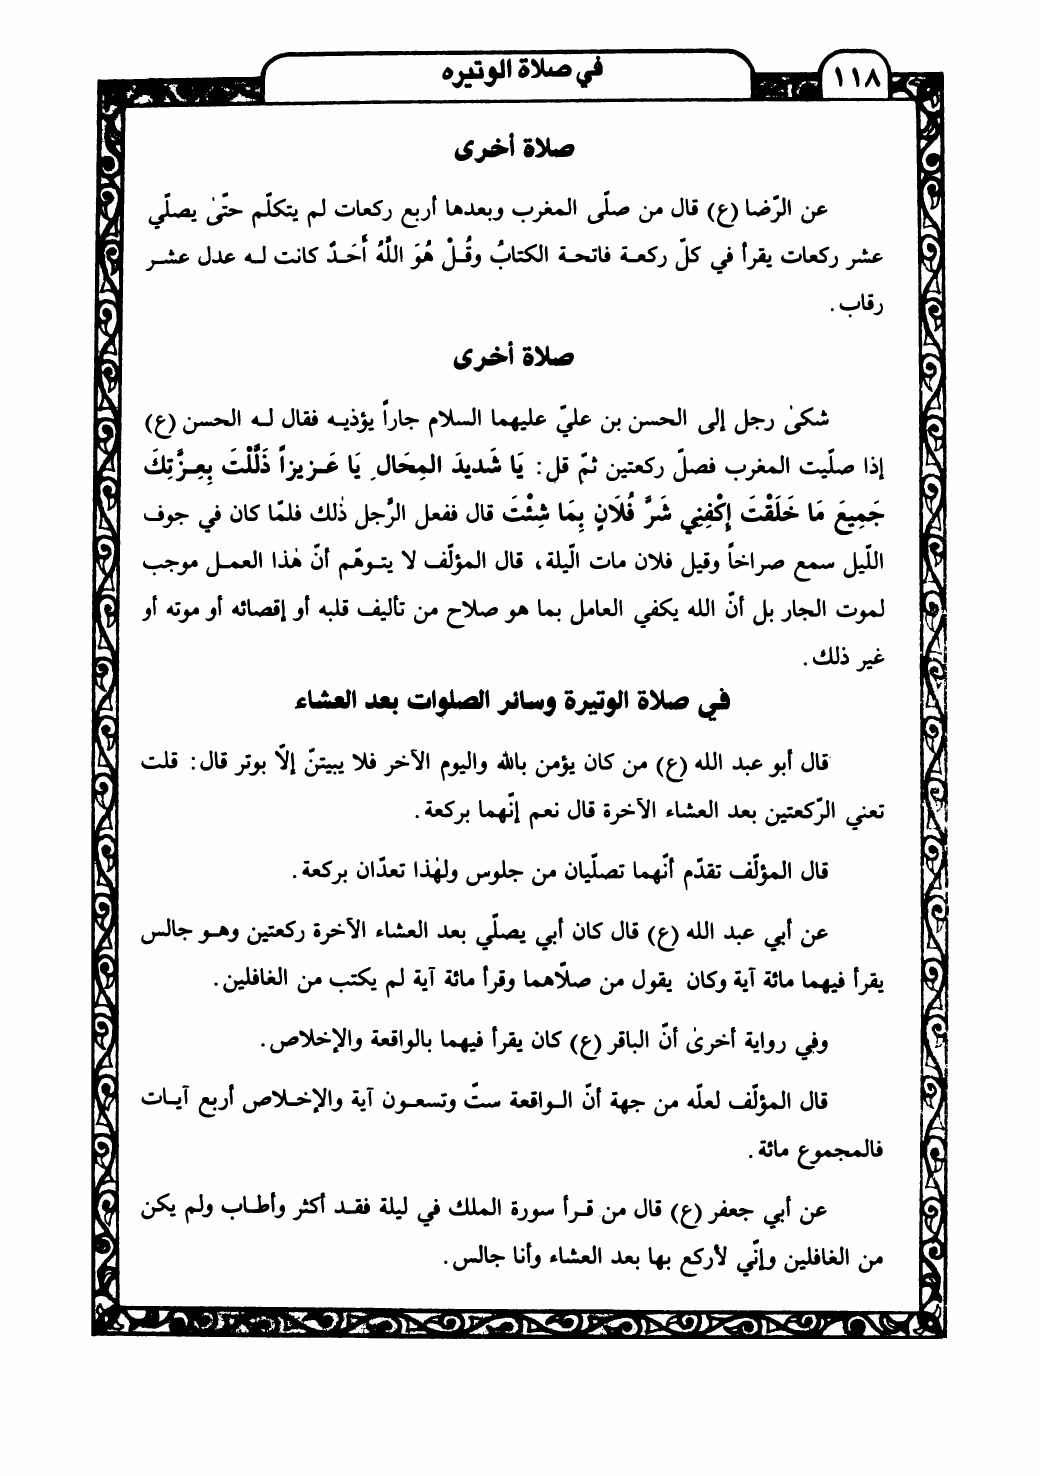 ١١٨
في صلاة الوتيره
صلاة أخرى
عن الرّضا (ع) قال من صلّى المغرب وبعدها أربع ركعات لم يتكلّم حتّىٰ يصلّي
عشر ركعات يقرأ في كلّ ركعة فاتحة الكتابُ وقُلْ هُوَ اللَّهُ أَحَدٌ كانت له عدل عشر
رقاب.
صلاة أخرى
شكىٰ رجل إلى الحسن بن عليّ عليهما السلام جاراً يؤذيه فقال له الحسن (ع)
إذا صلّيت المغرب فصلّ ركعتين ثمّ قل: يَا شَدِيدَ المِحَالِ يَا عَزيزاً ذَلَّلْتَ بِعِزَّتِكَ
جَمِيعَ مَا خَلَقْتَ إِكْفِنِي شَرَّ فُلَانٍ بِمَا شِئْتَ قال ففعل الرَّجل ذٰلك فلمّا كان في جوف
اللّيل سمع صراخاً وقيل فلان مات الّيلة، قال المؤلّف لا يتوهّم أنّ هٰذا العمل موجب
لموت الجار بل أنّ الله يكفي العامل بما هو صلاح من تأليف قلبه أو إقصائه أو موته أو
غير ذلك.
في صلاة الوتيرة وسائر الصلوات بعد العشاء
قال أبو عبد الله (ع) من كان يؤمن بالله واليوم الآخر فلا يبيتنّ إلّا بوتر قال: قلت
تعني الرّكعتين بعد العشاء الآخرة قال نعم إنّهما بركعة.
قال المؤلّف تقدّم أنّهما تصلّيان من جلوس ولهٰذا تعدّان بركعة.
عن أبي عبد الله (ع) قال كان أبي يصلّي بعد العشاء الآخرة ركعتين وهو جالس
يقرأ فيهما مائة آية وكان يقول من صلّاهما وقرأ مائة آية لم يكتب من الغافلين.
وفي رواية أخرىٰ أنّ الباقر (ع) كان يقرأ فيهما بالواقعة والإخلاص.
قال المؤلّف لعلّه من جهة أنّ الواقعة ستّ وتسعون آية والإخلاص أربع آيات
فالمجموع مائة.
عن أبي جعفر (ع) قال من قرأ سورة الملك في ليلة فقد أكثر وأطاب ولم يكن
من الغافلين وإنّي لأركع بها بعد العشاء وأنا جالس.